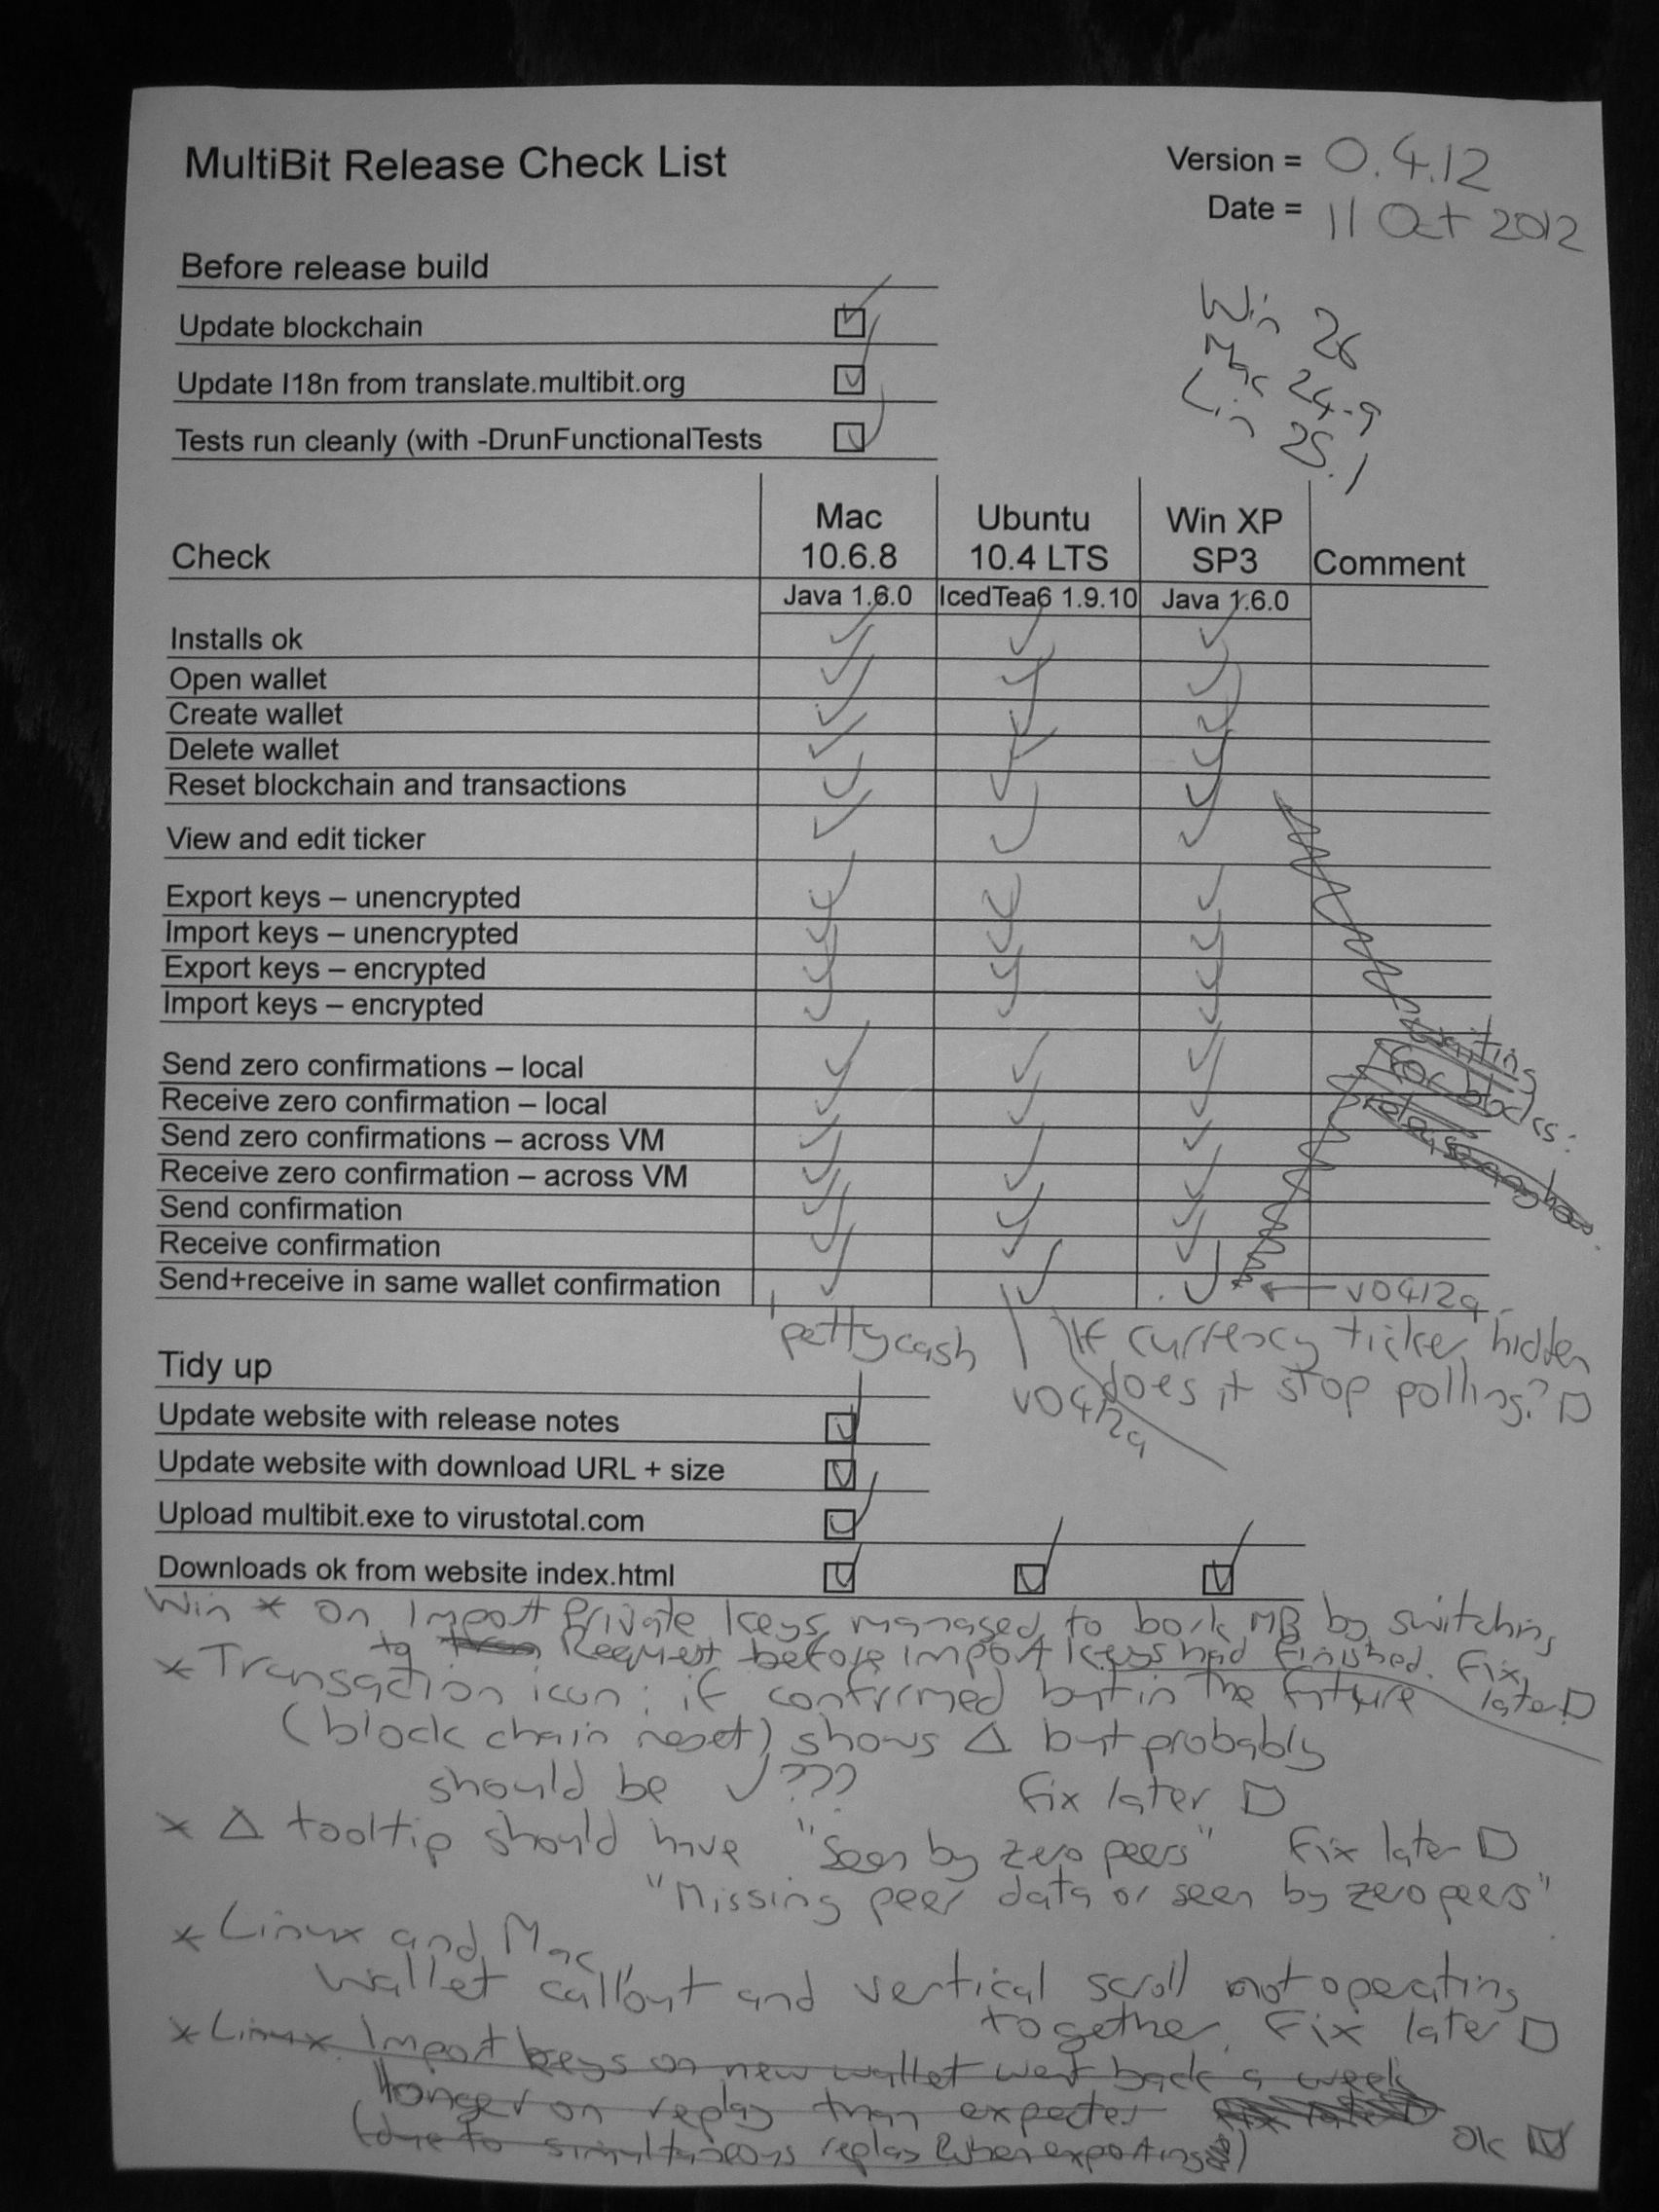 MultiBit Release Check List
Version = 0.4.12
Date = 11 Oct 2012
Before release build
Update blockchain ☑
Update I18n from translate.multibit.org ☑
Tests run cleanly (with -DrunFunctionalTests ☑
Win 26
Mac 24.9
Lin 25.1
Check
Mac 10.6.8
Ubuntu 10.4 LTS
Win XP SP3
Comment
Java 1.6.0
IcedTea6 1.9.10
Java 1.6.0
Installs ok ✓ ✓ ✓
Open wallet ✓ ✓ ✓
Create wallet ✓ ✓ ✓
Delete wallet ✓ ✓ ✓
Reset blockchain and transactions ✓ ✓ ✓
View and edit ticker ✓ ✓ ✓
Export keys – unencrypted ✓ ✓ ✓
Import keys – unencrypted ✓ ✓ ✓
Export keys – encrypted ✓ ✓ ✓
Import keys – encrypted ✓ ✓ ✓
Send zero confirmations – local ✓ ✓ ✓
Receive zero confirmation – local ✓ ✓ ✓
Send zero confirmations – across VM ✓ ✓
Receive zero confirmation – across VM ✓ ✓ ✓
Send confirmation ✓ ✓ ✓
Receive confirmation ✓ ✓ ✓
Send+receive in same wallet confirmation ✓ ✓ ✓ * ← v0412a
waiting
for blocks:
petty cash
v0412a
If currency ticker hidden
does it stop polling? □
Tidy up
Update website with release notes ☑
Update website with download URL + size ☑
Upload multibit.exe to virustotal.com ☑
Downloads ok from website index.html ☑ ☑ ☑
Win * on Import Private keys managed to bork MB by switching
to Request before import keys had finished. Fix
later □
* Transaction icon: if confirmed but in the future
(block chain reset) shows △ but probably
should be ✓ ??? Fix later □
* △ tooltip should have "Seen by zero peers" Fix later □
"Missing peer data or seen by zero peers"
* Linux and Mac
Wallet callout and vertical scroll not operating
together. Fix later □
* Linux. Import keys on new wallet went back a week
longer on replay than expected
(due to simultaneous replay when exporting) ok ☑